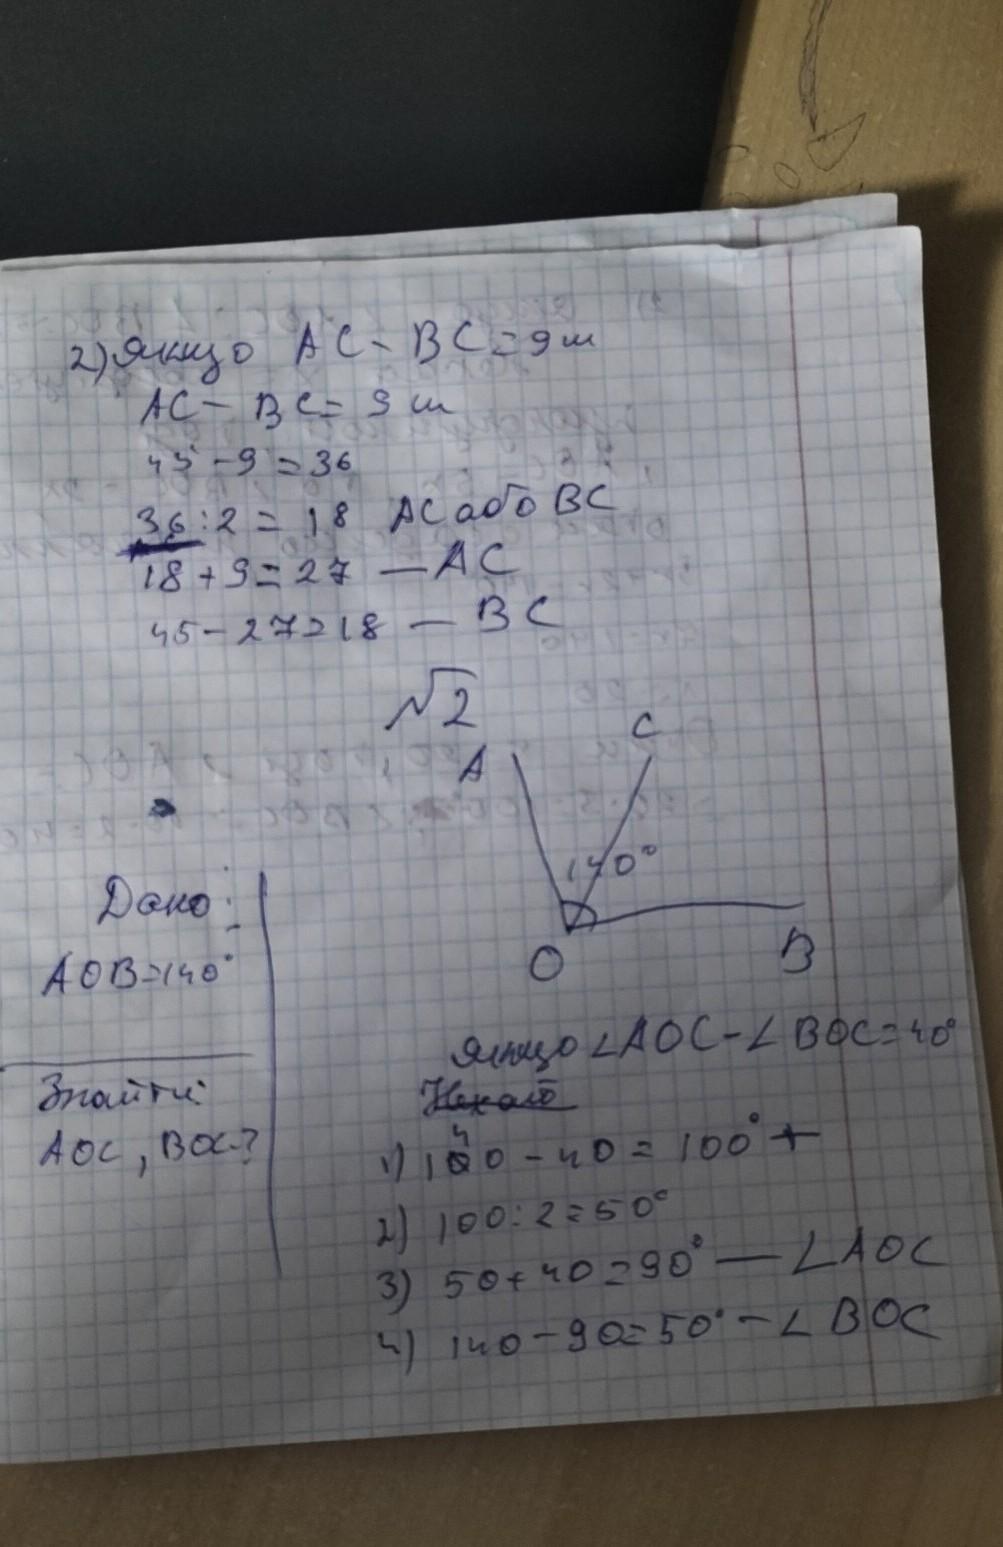 2) Якщо AC - BC = 9 м
AC - BC = 9 м
45 - 9 = 36
36 : 2 = 18 AC або BC
18 + 9 = 27 — AC
45 - 27 = 18 — BC
√2
A C
140°
O B
Дано:
AOB = 140°
Знайти:
AOC, BOC - ?
Якщо ∠AOC - ∠BOC = 40°
1) 140 - 40 = 100° +
2) 100 : 2 = 50°
3) 50 + 40 = 90° — ∠AOC
4) 140 - 90 = 50° - ∠BOC